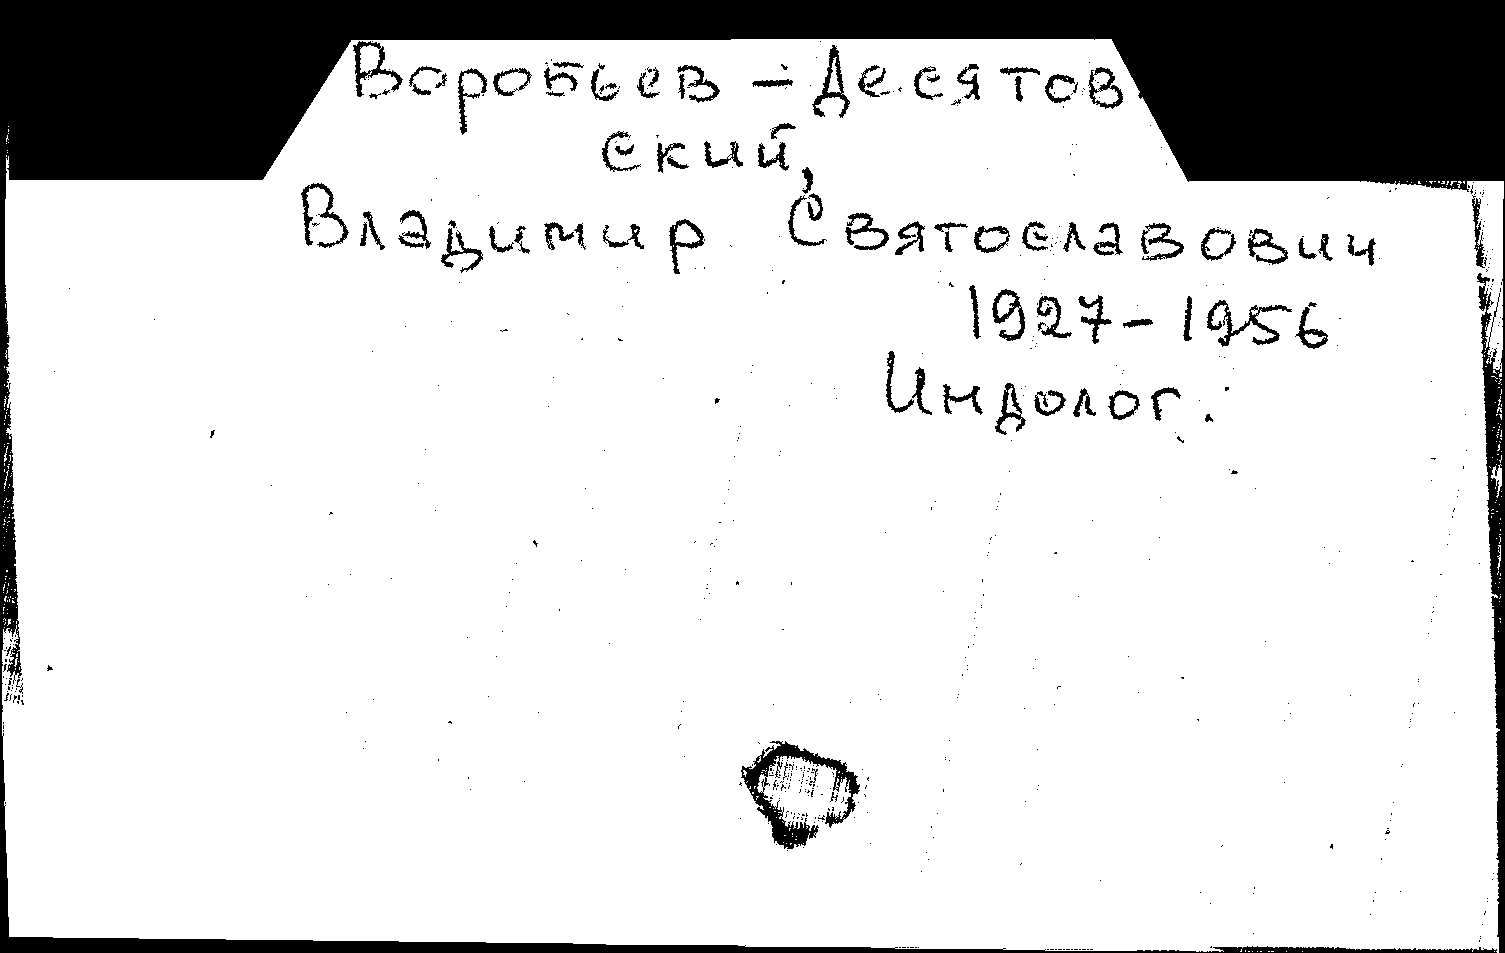 Воробьев - Десятов-
ский,
Владимир Святославович
1927 - 1956
Индолог.